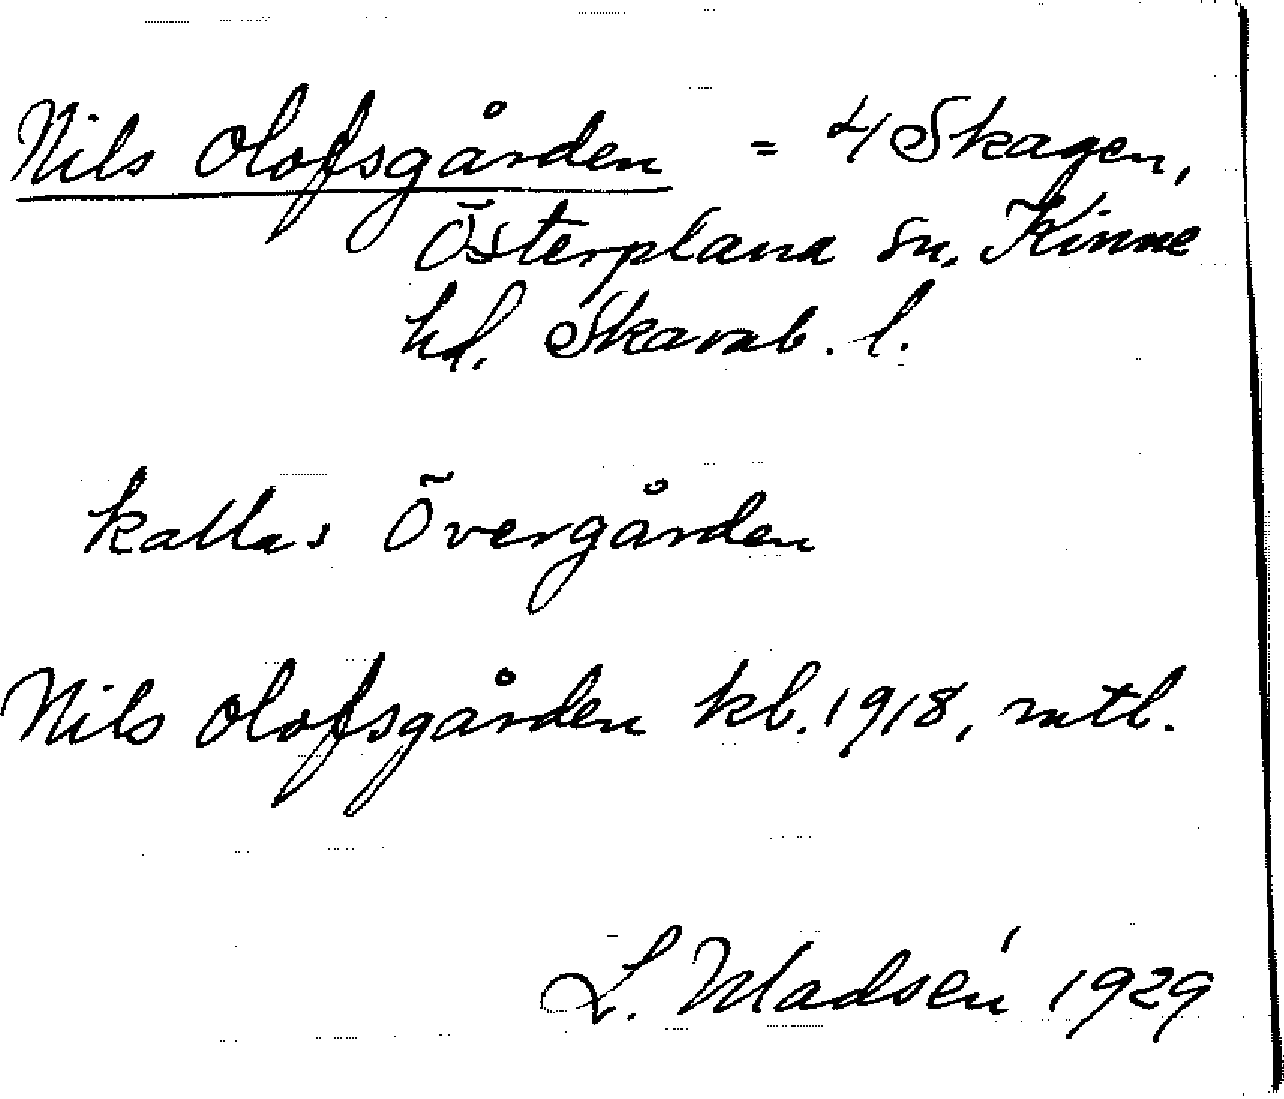 Nils Olofsgården = 4/ Skagen,
Österplana sn, Kinne
hd. Skarab. l.
kallas Övergården
Nils Olofsgården kb. 1918, mtl.
L. Madsén 1929